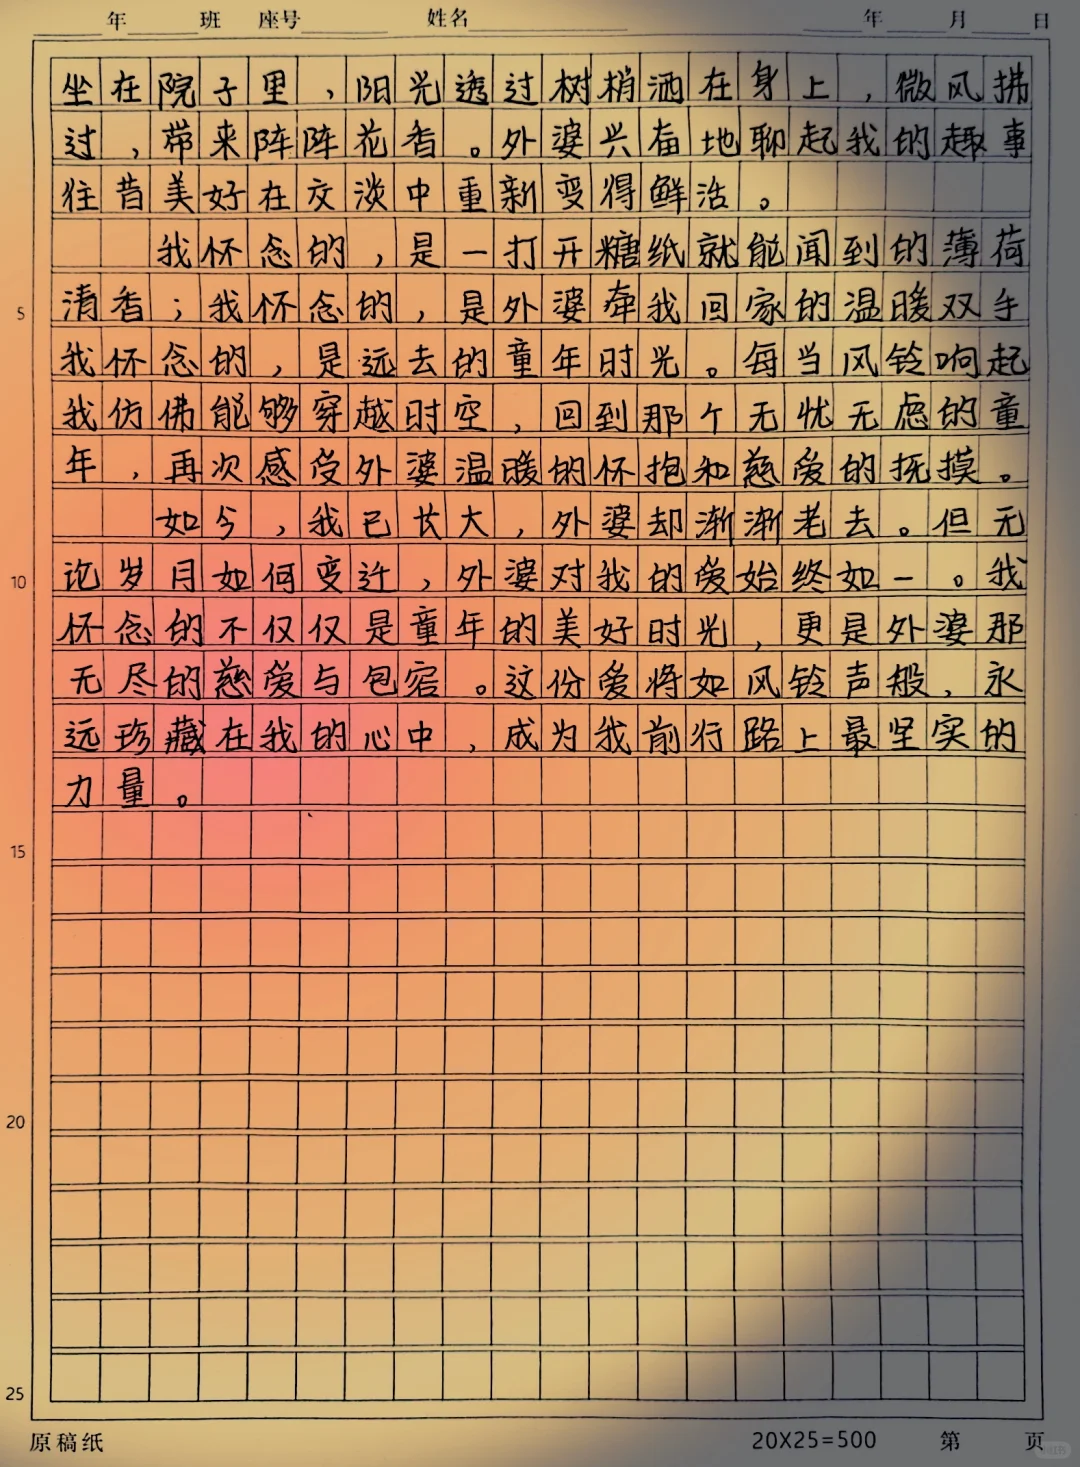 年 班 座号 姓名 年 月 日
坐在院子里，阳光透过树梢洒在身上，微风拂
过，带来阵阵花香。外婆兴奋地聊起我的趣事
往昔美好在交淡中重新变得鲜活。
我怀念的，是一打开糖纸就能闻到的薄荷
清香；我怀念的，是外婆牵我回家的温暖双手
5
我怀念的，是远去的童年时光。每当风铃响起
我仿佛能够穿越时空，回到那个无忧无虑的童
年，再次感受外婆温暖的怀抱和慈爱的抚摸。
如今，我已长大，外婆却渐渐老去。但无
论岁月如何变迁，外婆对我的爱始终如一。我
10
怀念的不仅仅是童年的美好时光，更是外婆那
无尽的慈爱与包容。这份爱将如风铃声般，永
远珍藏在我的心中，成为我前行路上最坚实的
力量。
15
20
25
原稿纸 20X25=500 第 页